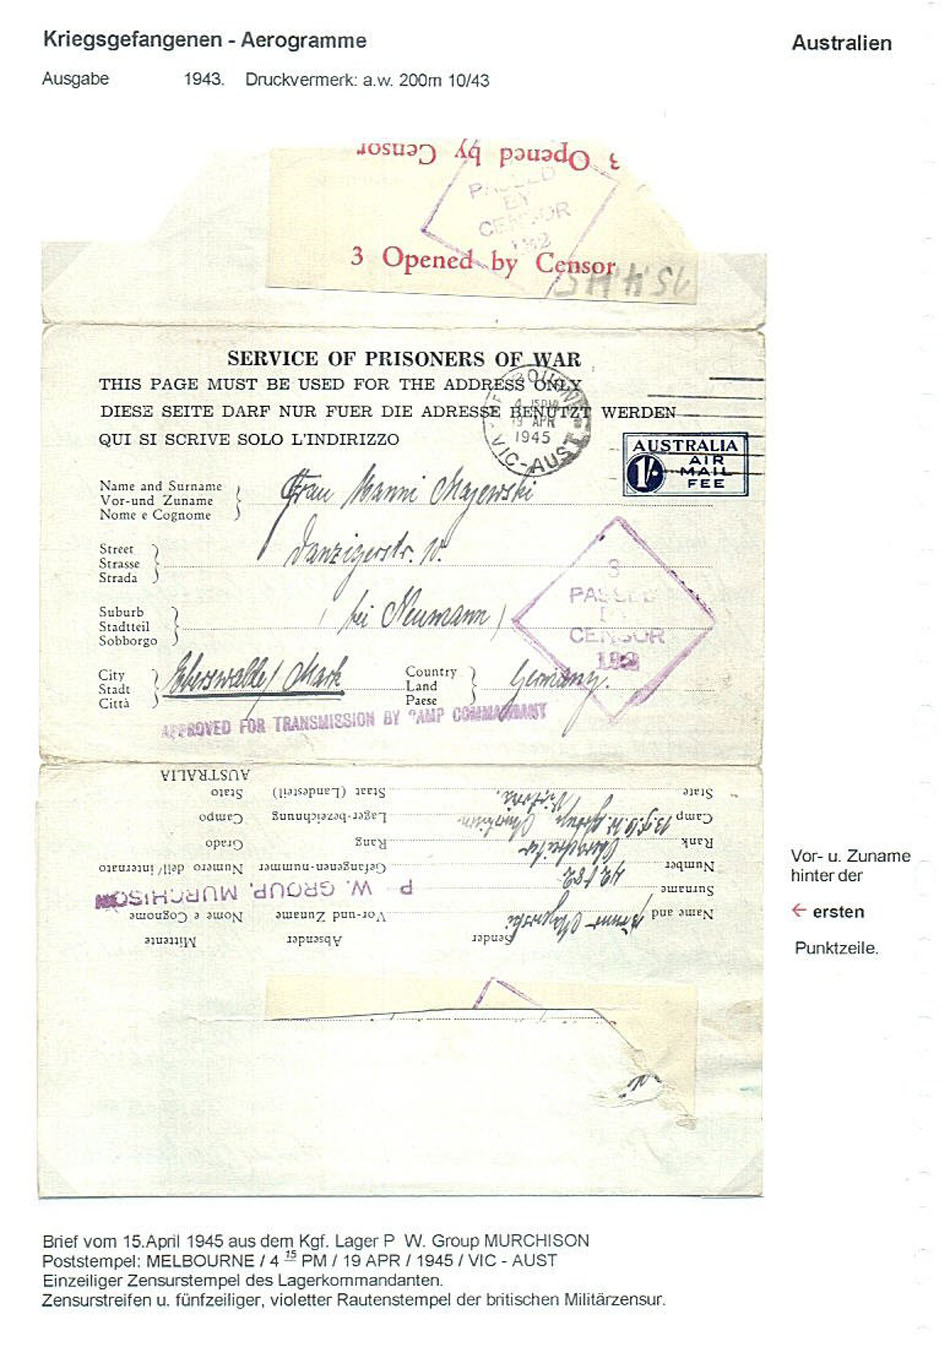 Kriegsgefangenen - Aerogramme
Australien
Ausgabe 1943. Druckvermerk: a.w. 200m 10/43
3 Opened by Censor
PASSED
BY
CENSOR
3 Opened by Censor
15.4.45
SERVICE OF PRISONERS OF WAR
THIS PAGE MUST BE USED FOR THE ADDRESS ONLY
DIESE SEITE DARF NUR FUER DIE ADRESSE BENUTZT WERDEN
QUI SI SCRIVE SOLO L'INDIRIZZO
MELBOURNE
4 15PM
19 APR
1945
VIC-AUST
AUSTRALIA
1/- AIR
MAIL
FEE
Name and Surname
Vor-und Zuname
Nome e Cognome
Frau Manni Majewski
Street
Strasse
Strada
Danzigerstr. 10.
Suburb
Stadtteil
Sobborgo
(bei Neumann)
3
PASSED
BY
CENSOR
City
Stadt
Città
Eberswalde/Mark
Country
Land
Paese
Germany.
APPROVED FOR TRANSMISSION BY CAMP COMMANDANT
Sender Absender Mittente
Name and Surname Vor-und Zuname Nome e Cognome
Majewski
P W. GROUP, MURCHISON
Number Gefangenen-nummer Numero dell' internato
Rank Rang Grado
Obergefreiter
Camp Lager-bezeichnung Campo
Murchison
State Staat (Landesteil) Stato
Victoria.
AUSTRALIA
Vor- u. Zuname
hinter der
← ersten
Punktzeile.
Brief vom 15.April 1945 aus dem Kgf. Lager P W. Group MURCHISON
Poststempel: MELBOURNE / 4 15 PM / 19 APR / 1945 / VIC - AUST
Einzeiliger Zensurstempel des Lagerkommandanten.
Zensurstreifen u. fünfzeiliger, violetter Rautenstempel der britischen Militärzensur.